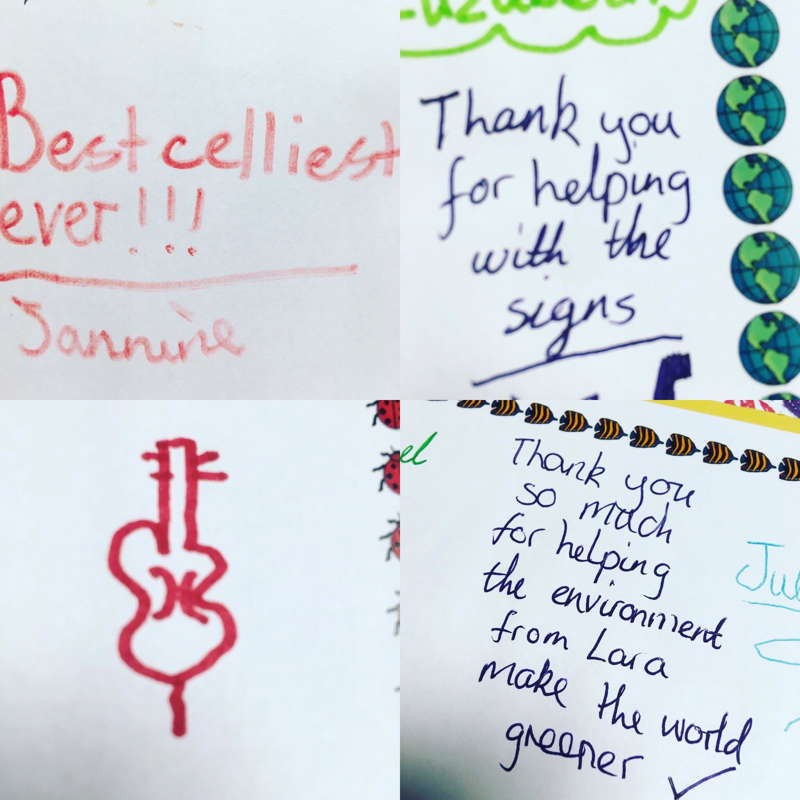 Best celliest
ever!!!
Jannine
Thank you
for helping
with the
signs
el
Thank you
so much
for helping
the environment
from Lara
make the world
greener